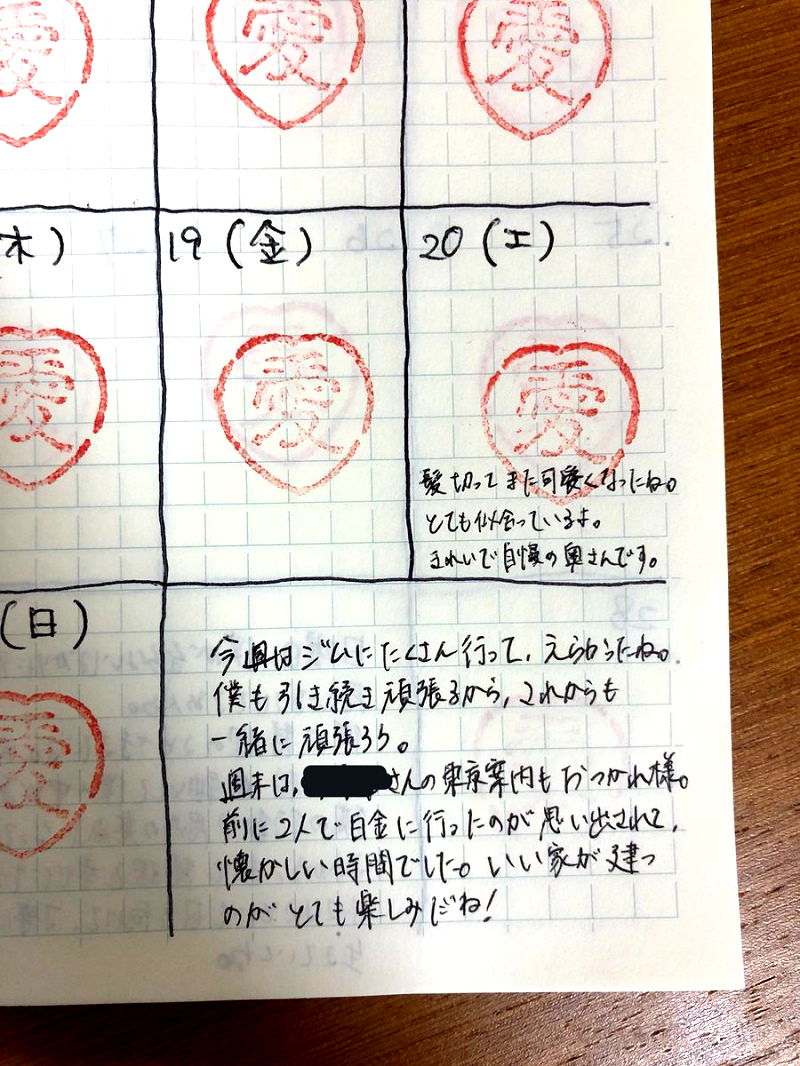 愛
愛
愛
木)
19 (金)
20 (土)
愛
愛
愛
髪切ってまた可愛くなったね。
とても似合っているよ。
きれいで自慢の奥さんです。
(日)
愛
今週はジムにたくさん行って、えらかったね。
僕も引き続き頑張るから、これからも
一緒に頑張ろう。
週末は、さんの東京案内もおつかれ様。
前に2人で白金に行ったのが思い出されて、
懐かしい時間でした。いい家が建つ
のがとても楽しみだね!